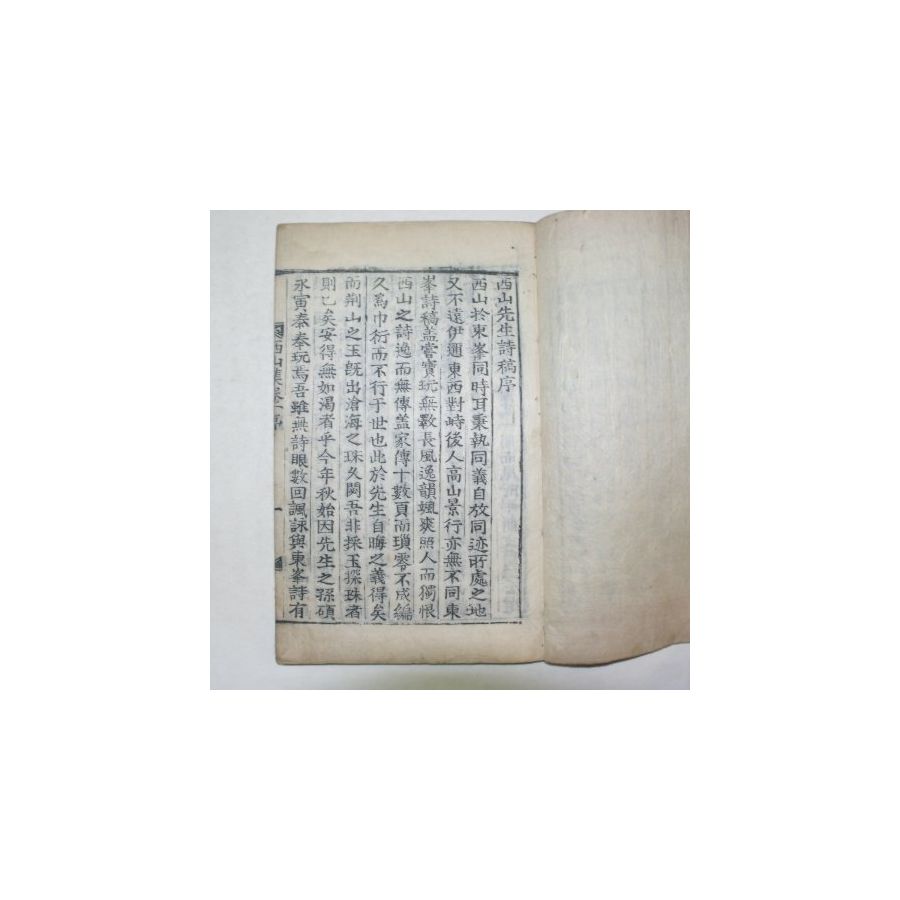 西山先生詩稿序
西山於東峯同時耳秉執同義自放同迹所處之地
又不遠伊邇東西對峙後人高山景行亦無不同東
峯詩稿盖嘗寶玩無斁長風逸韻颯爽照人而獨恨
西山之詩逸而無傳盖家傳十數頁而瑣零不成編
久爲巾衍而不行于世也此於先生自晦之義得矣
而荆山之玉旣出滄海之珠久闕吾非採玉探珠者
則已矣安得無如渴者乎今年秋始因先生之孫碩
永寅泰奉玩焉吾雖無詩眼數回諷詠與東峯詩有
西山集卷一序
一